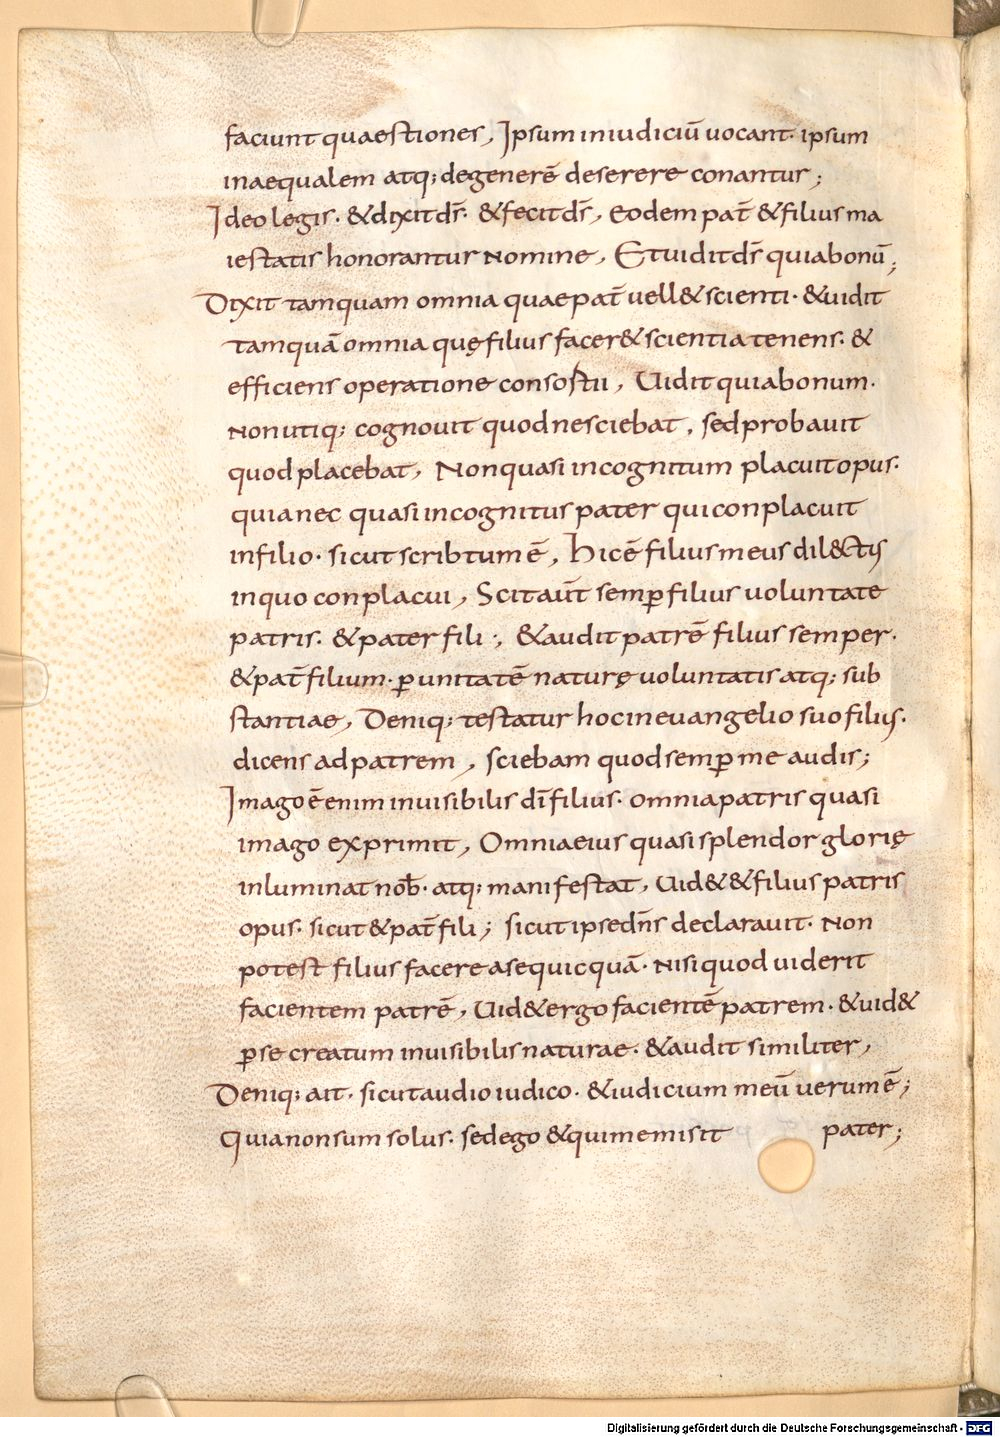 faciunt quaestiones, Ipsum iniudiciū uocant· ipsum
inaequalem atq; degenerē deserere conantur;
Ideo legis· & dixit ds̄· & fecit ds̄, Eodem pat̄ & filius ma
iestatis honorantur nomine, Et uidit ds̄ quia bonū;
Dixit tamquam omnia quae pat̄ uell& scienti· & uidit
tamquā omnia quę filius facer& scientia tenens· &
efficiens operatione consostii, Uidit quia bonum·
Non utiq; cognouit quod nesciebat, sed probauit
quod placebat, Non quasi incognitum placuit opus·
quia nec quasi incognitus pater qui conplacuit
infilio· sicut scribtum ē, Hic ē filius meus dil&tis
inquo conplacui, Scit aūt semꝑ filius uoluntate
patris· & pater fili;, & audit patrē filius semper·
& pat̄ filium· ꝑ unitatē naturę uoluntatis atq; sub
stantiae, Deniq; testatur hoc in euangelio suo filius·
dicens ad patrem, sciebam quod semꝑ me audis;
Imago ē enim inuisibilis dī filius· omnia patris quasi
imago exprimit, Omnia eius quasi splendor glorię
inluminat nob̄· atq; manifestat, Uid& & filius patris
opus· sicut & pat̄ fili; sicut ipse dn̄s declarauit· Non
potest filius facere a se quicquā· nisi quod uiderit
facientem patrē, Uid& ergo facientē patrem· & uid&
ꝑ se creatum inuisibilis naturae· & audit similiter,
Deniq; ait· sicut audio iudico· & iudicium meū uerum ē;
Quia non sum solus· sed ego & qui me misit pater;
Digitalisierung gefördert durch die Deutsche Forschungsgemeinschaft - DFG